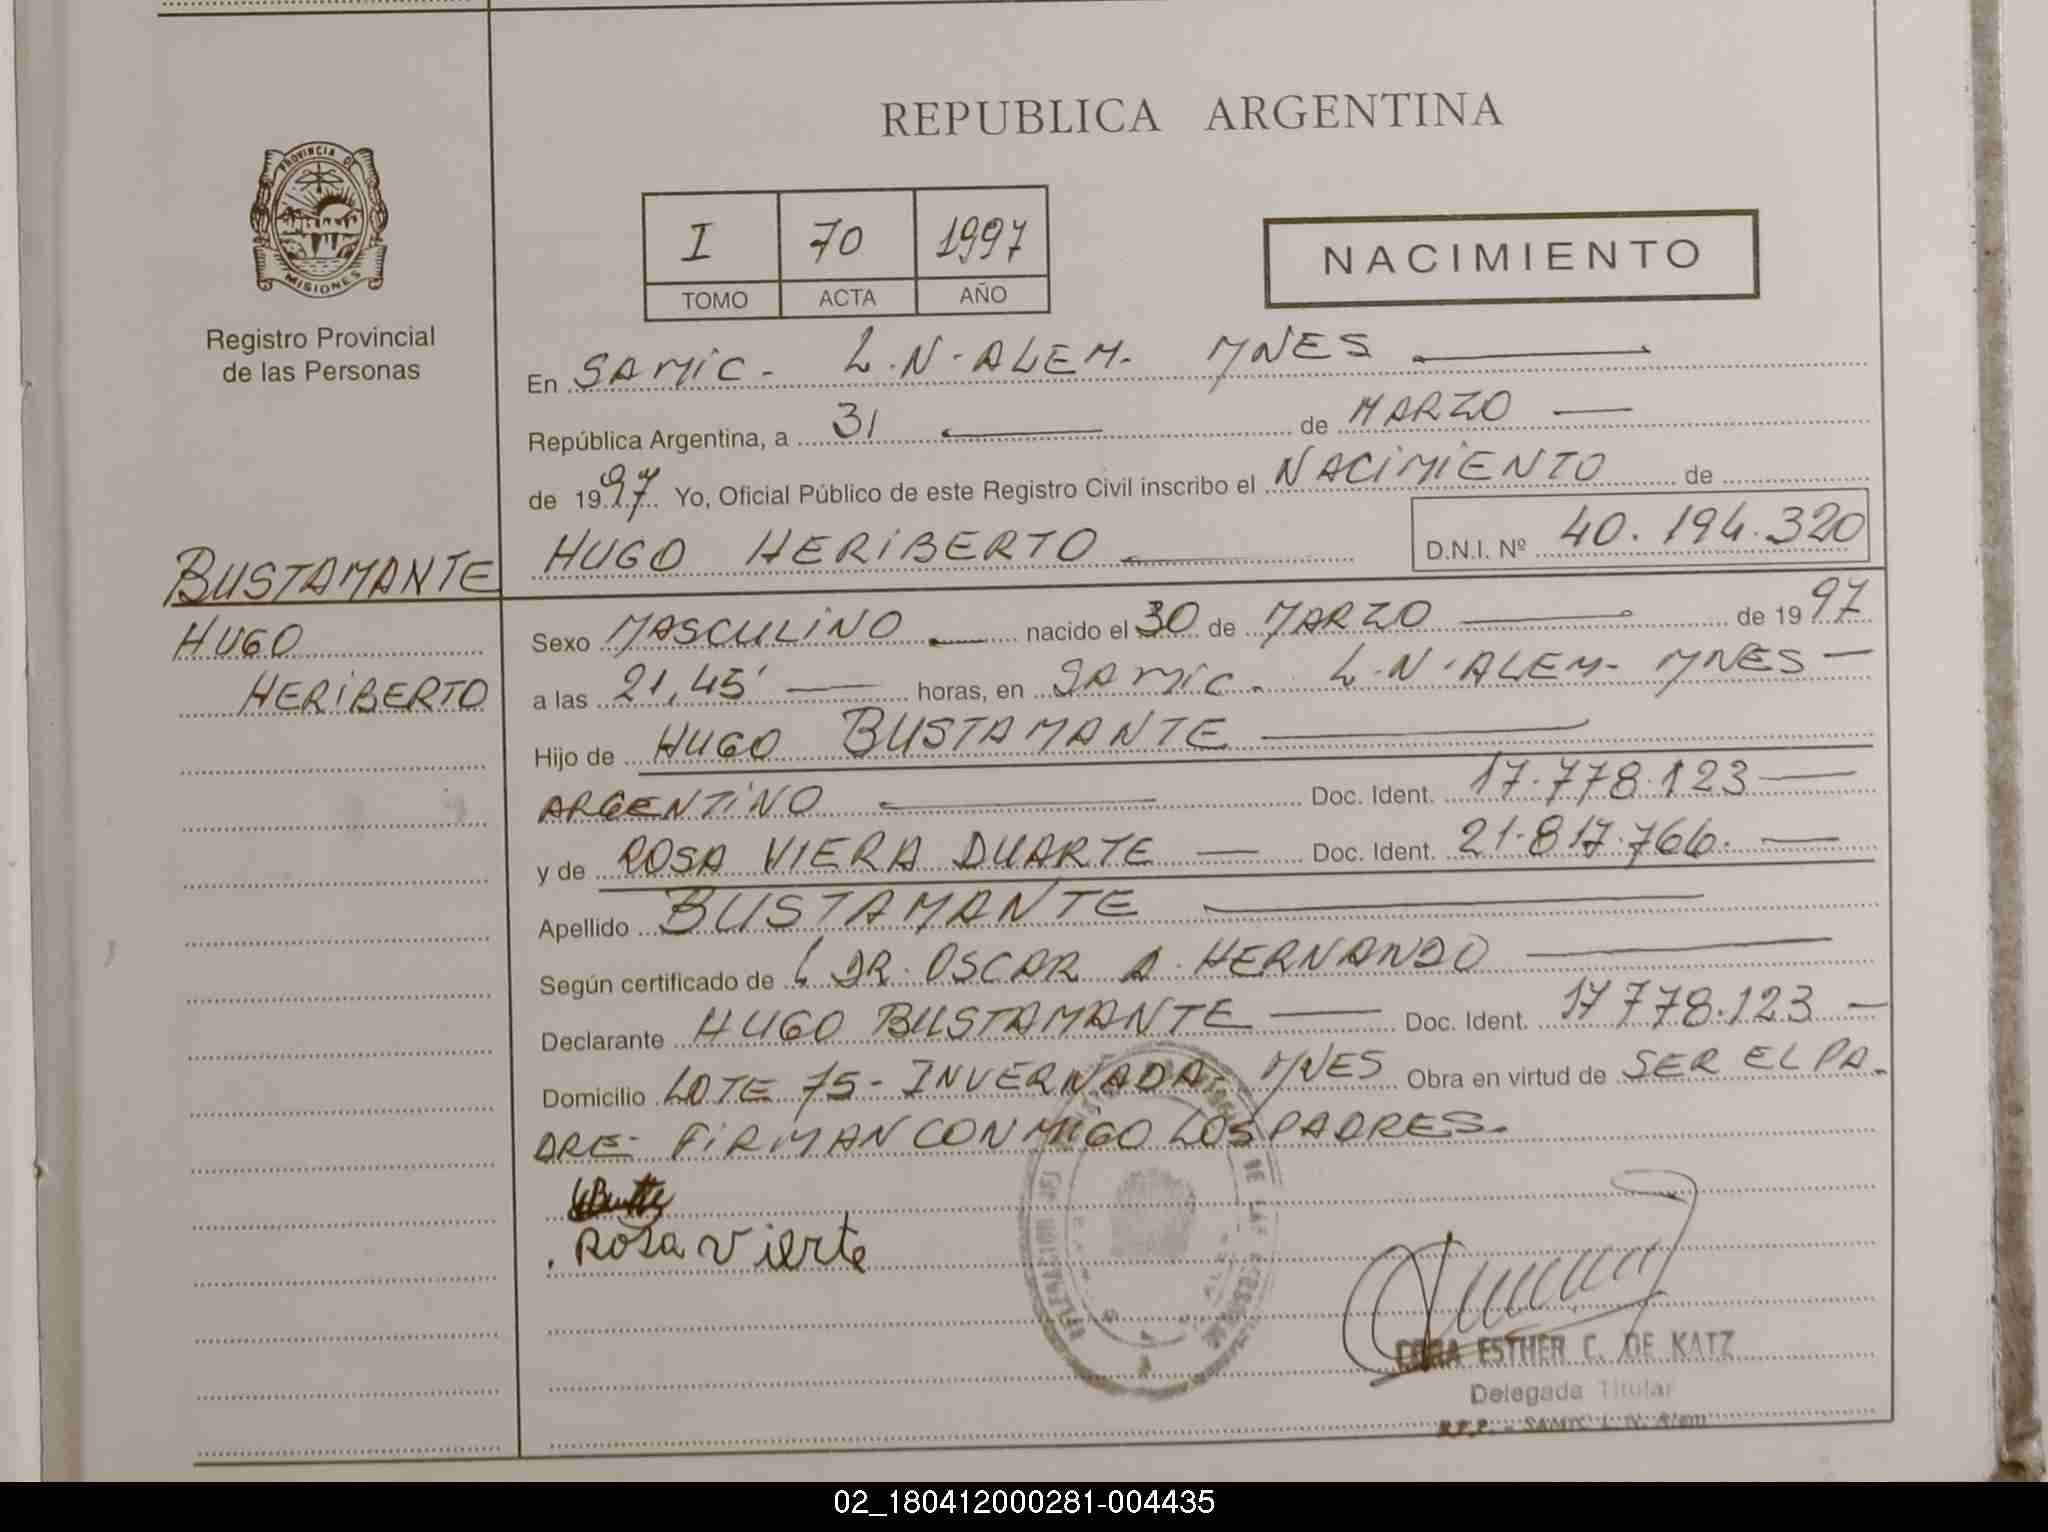 REPUBLICA ARGENTINA
PROVINCIA DE
MISIONES
Registro Provincial
de las Personas
I 70 1997
TOMO ACTA AÑO
NACIMIENTO
En SAMIC - L.N-ALEM- MNES
República Argentina, a 31 de MARZO
de 1997 Yo, Oficial Público de este Registro Civil inscribo el NACIMIENTO de
HUGO HERIBERTO D.N.I. Nº 40.194.320
BUSTAMANTE
HUGO
HERIBERTO
Sexo MASCULINO nacido el 30 de MARZO de 1997
a las 21,45' horas, en SAMIC - L.N-ALEM- MNES
Hijo de HUGO BUSTAMANTE
ARGENTINO Doc. Ident. 17.778.123
y de ROSA VIERA DUARTE Doc. Ident. 21.817.766.
Apellido BUSTAMANTE
Según certificado de DR. OSCAR A. HERNANDO
Declarante HUGO BUSTAMANTE Doc. Ident. 17 778.123
Domicilio LOTE 75- INVERNADA- MNES Obra en virtud de SER EL PA-
DRE- FIRMAN CONMIGO LOS PADRES.
Rosa Vierte
ESTHER C. DE KATZ
Delegada Titular
R.P.P. - SAMIC L. N. Alem
02_180412000281-004435